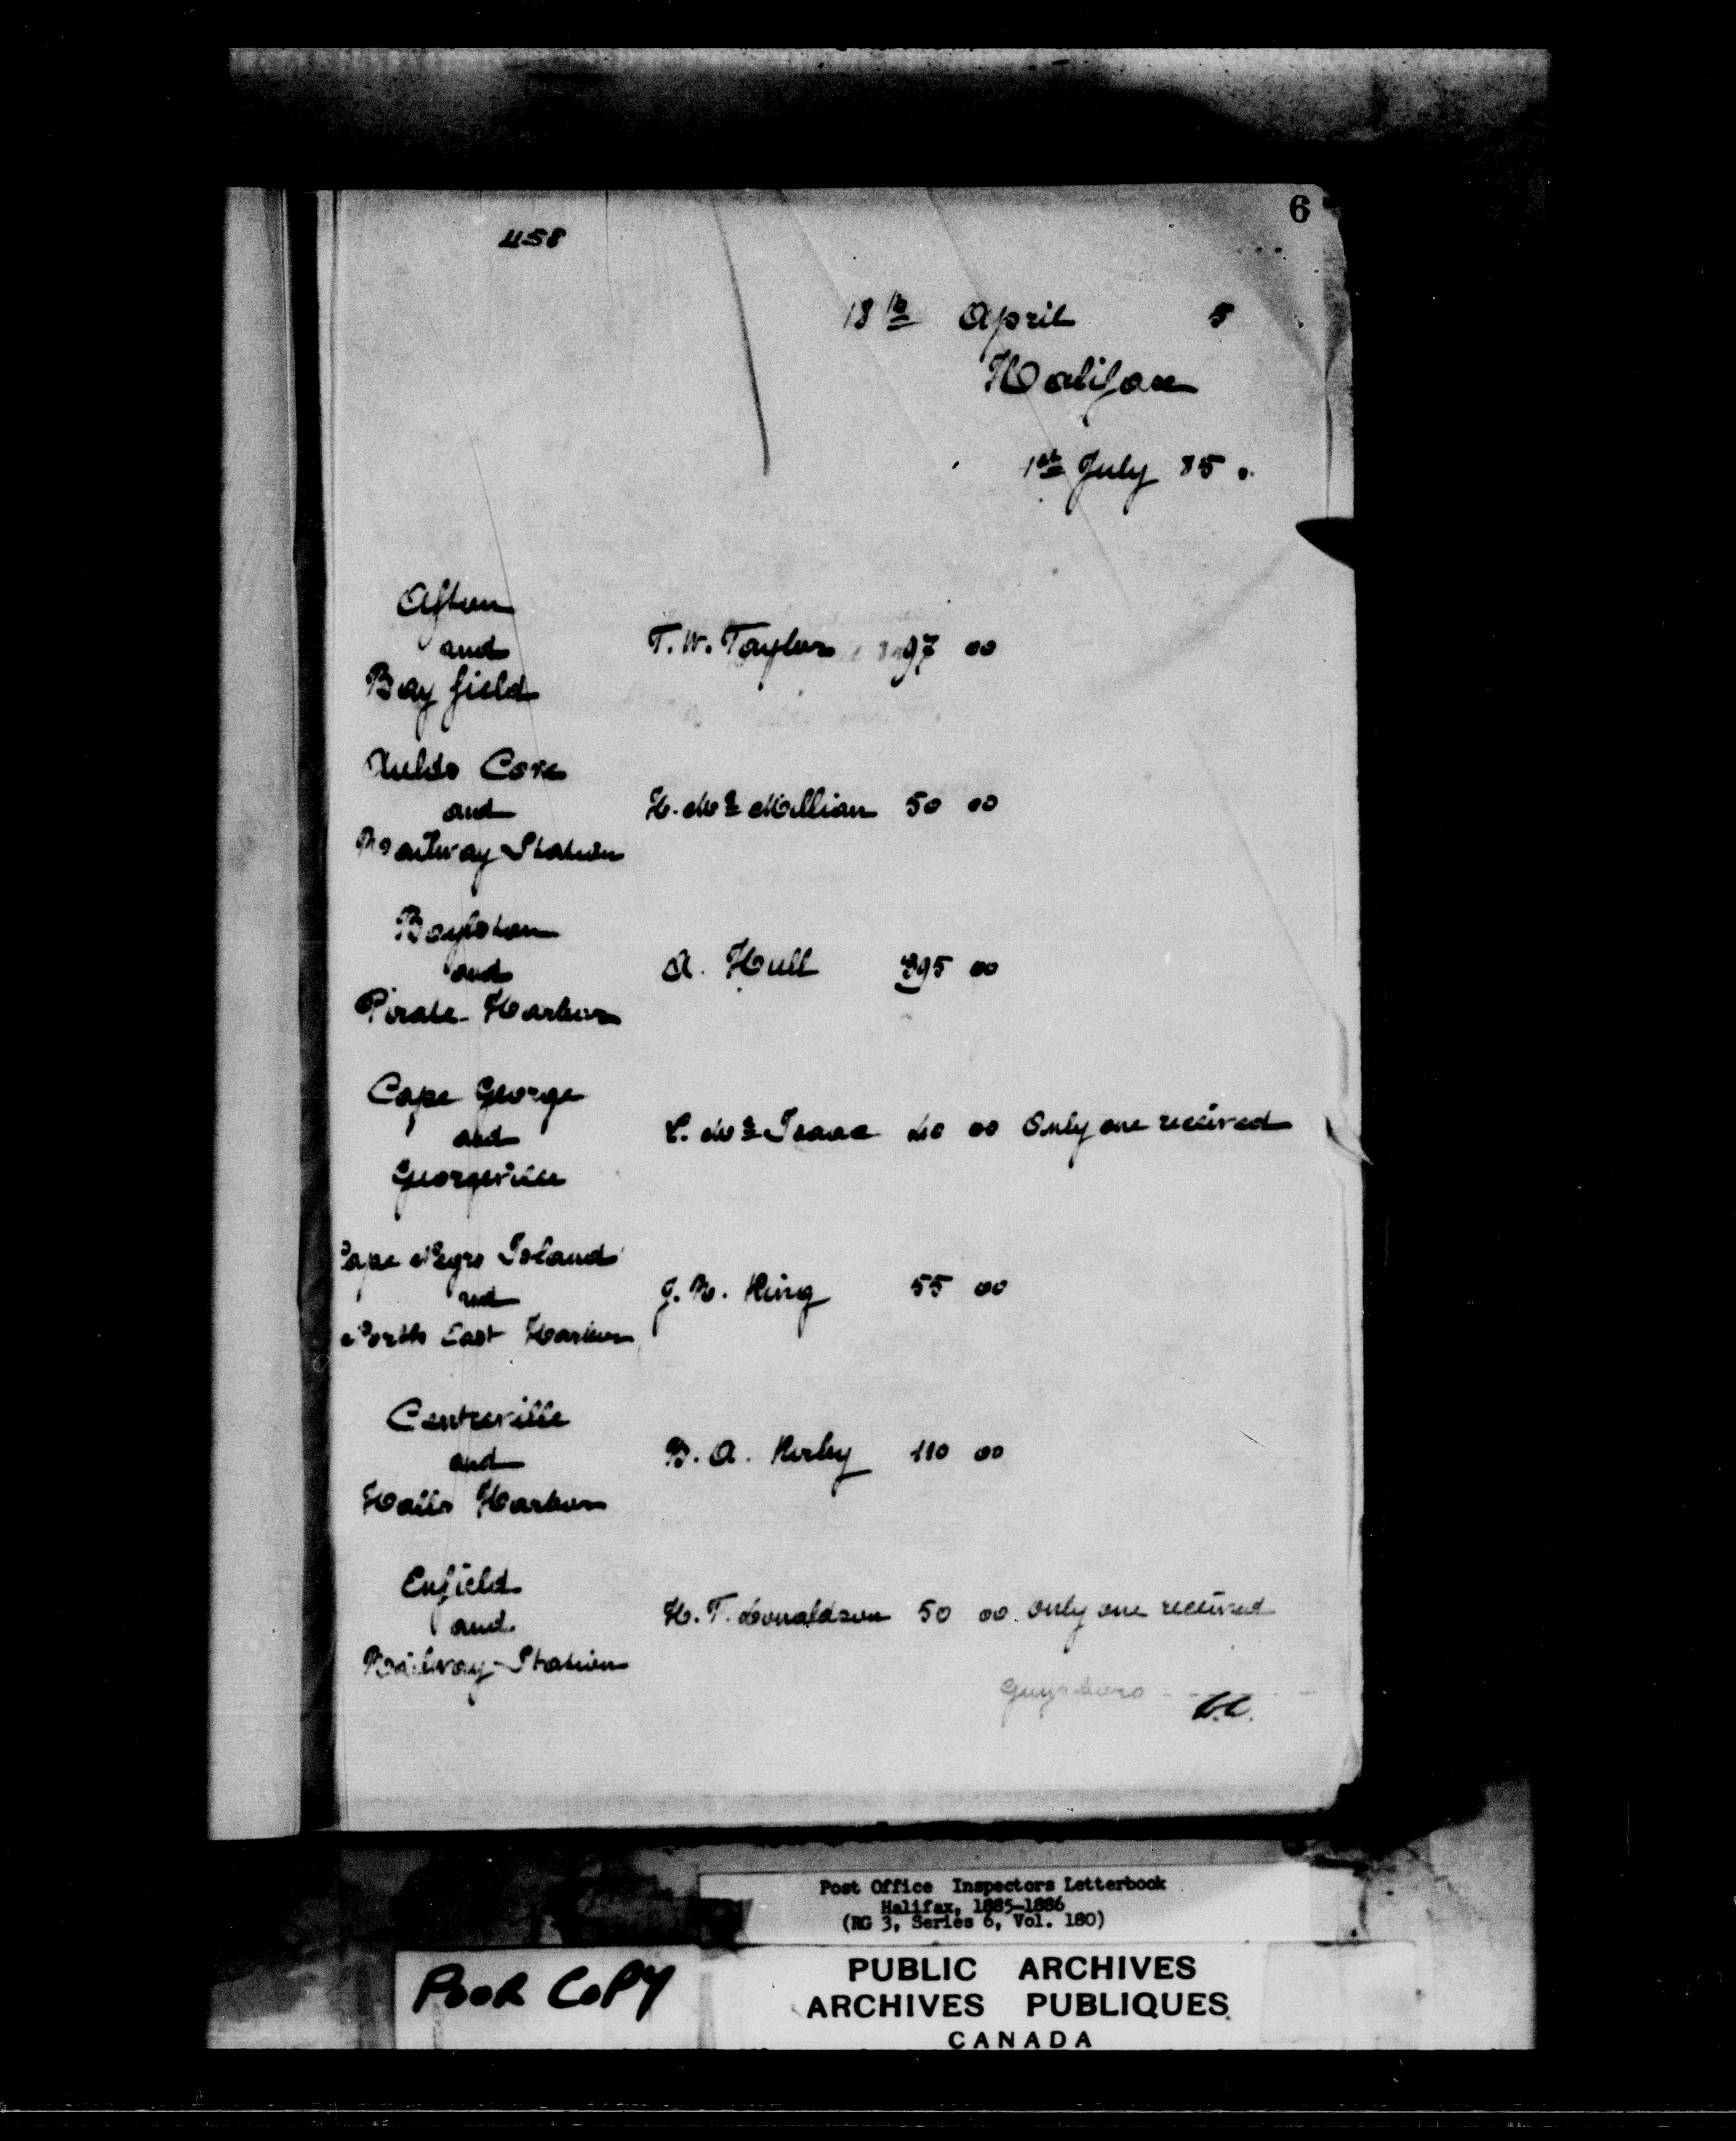 6
458
18th April 5
Halifax
1st July 85.
Afton
and T.W. Taylor 97 00
Bayfield
Aulds Cove
and H. McMillian 50 00
Railway Station
Boylston
and A. Hull 395 00
Pirate Harbour
Cape George
and L. McIsaac 40 00 Only one received
Georgeville
Cape Negro Island
and J. K. King 55 00
North East Harbour
Centreville
and B. A. Kirby 110 00
Halls Harbour
Enfield
and H. T. Donaldson 50 00 Only one received
Railway Station
Guysboro
Post Office Inspectors Letterbook
Halifax, 1885-1886
(RG 3, Series 6, Vol. 180)
POOR COPY
PUBLIC ARCHIVES
ARCHIVES PUBLIQUES
CANADA